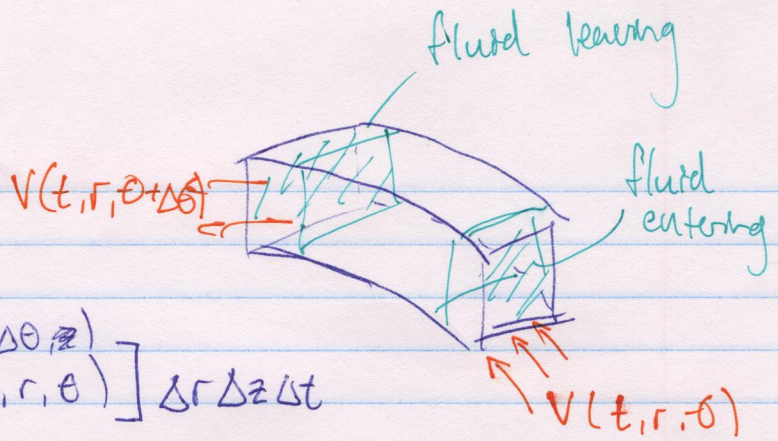 fluid leaving
V(t,r,θ+Δθ)
fluid
entering
Δθ,z)
,r,θ) ] Δr Δz Δt
V(t,r,θ)